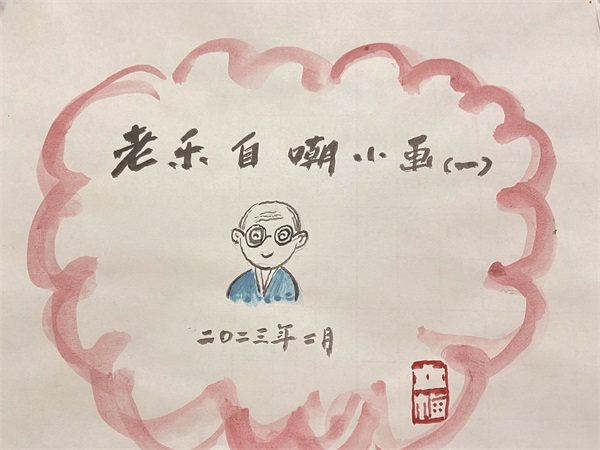 老乐自嘲小画(一)
二〇二三年二月